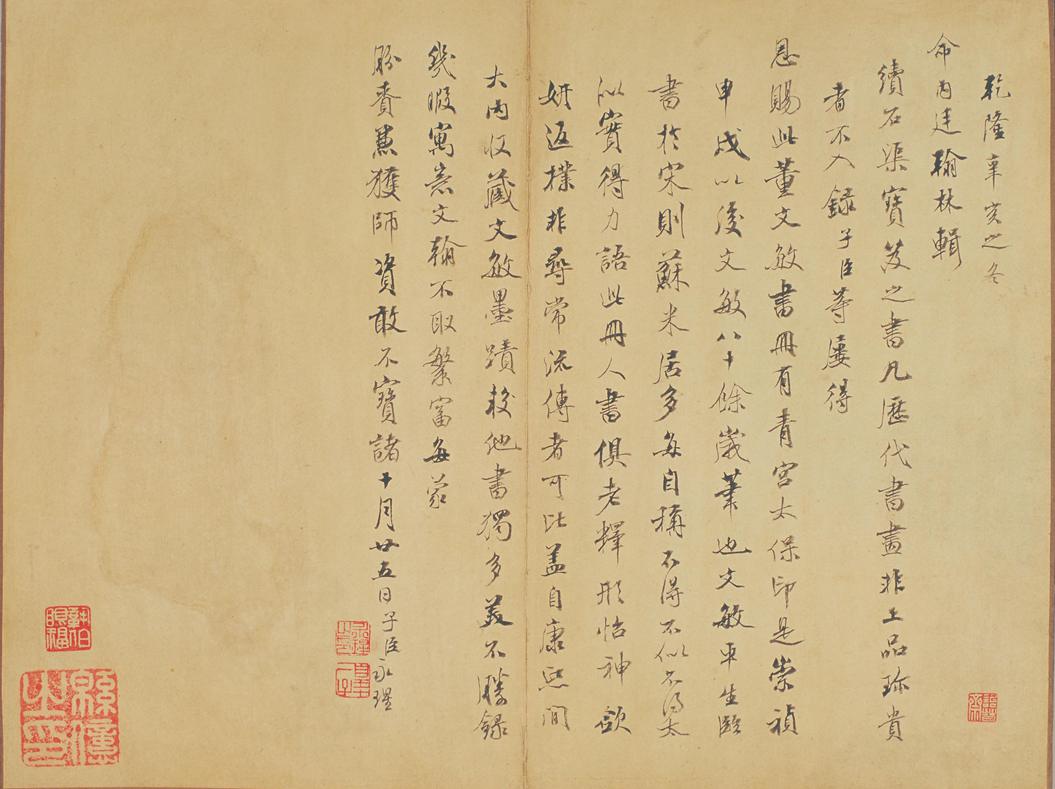 乾隆辛亥之冬
命內廷翰林輯
續石渠寶笈之書凡歷代書畫非上品珎貴
者不入錄子臣等屢得
恩賜此董文敏書冊有青宮太保印是崇禎
申戌以後文敏八十餘歲筆也文敏平生臨
書於宋則蘇米居多每自稱不得不似不得太
似實得力語此冊人書俱老釋形怡神歛
妍返樸非尋常流傳者可比盖自康熙間
大內收藏文敏墨蹟較他書獨多美不勝錄
幾暇寓意文翰不取繁富每蒙
賚兼獲師資敢不寶諸十月廿五日子臣永瑆